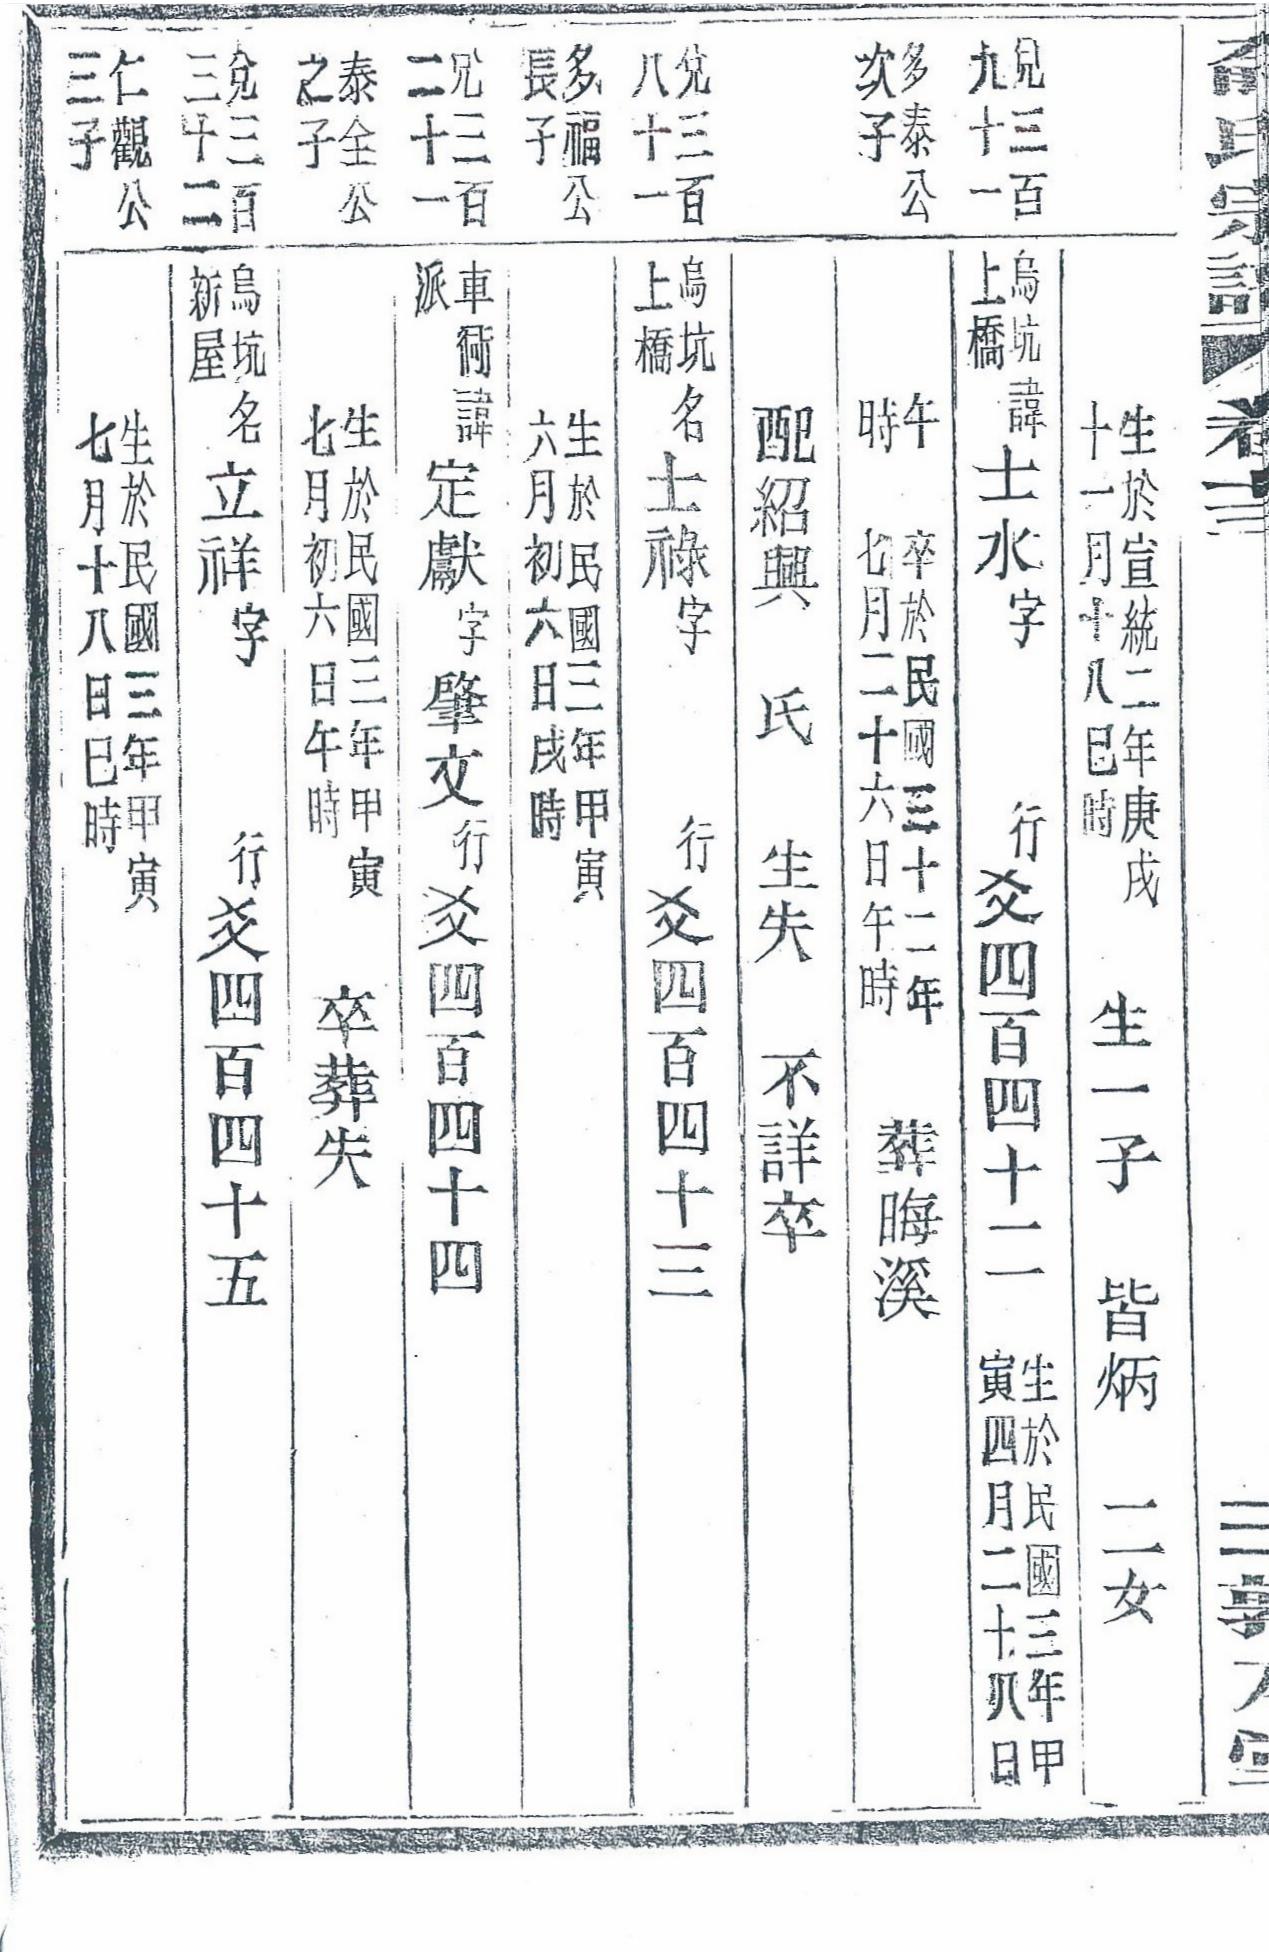 氏宗譜 卷三
生於宣統二年庚戌
十一月十八巳時
生一子 皆炳 二女
兌三百
九十一
烏坑
上橋
諱士水字 行爻四百四十二
生於民國三年甲
寅四月二十八日
多泰公
次子
午
時
卒於民國三十二年
七月二十六日午時
葬晦溪
配紹興 氏 生失 不詳卒
兌三百
八十一
烏坑
上橋
名士祿字 行爻四百四十三
多福公
長子
生於民國三年甲寅
六月初六日戌時
兌三百
二十一
車衕
派
諱定獻字肇文行爻四百四十四
泰全公
之子
生於民國三年甲寅
七月初六日午時
卒葬失
兌三百
三十二
烏坑
新屋
名立祥字 行爻四百四十五
仁觀公
三子
生於民國三年甲寅
七月十八日巳時